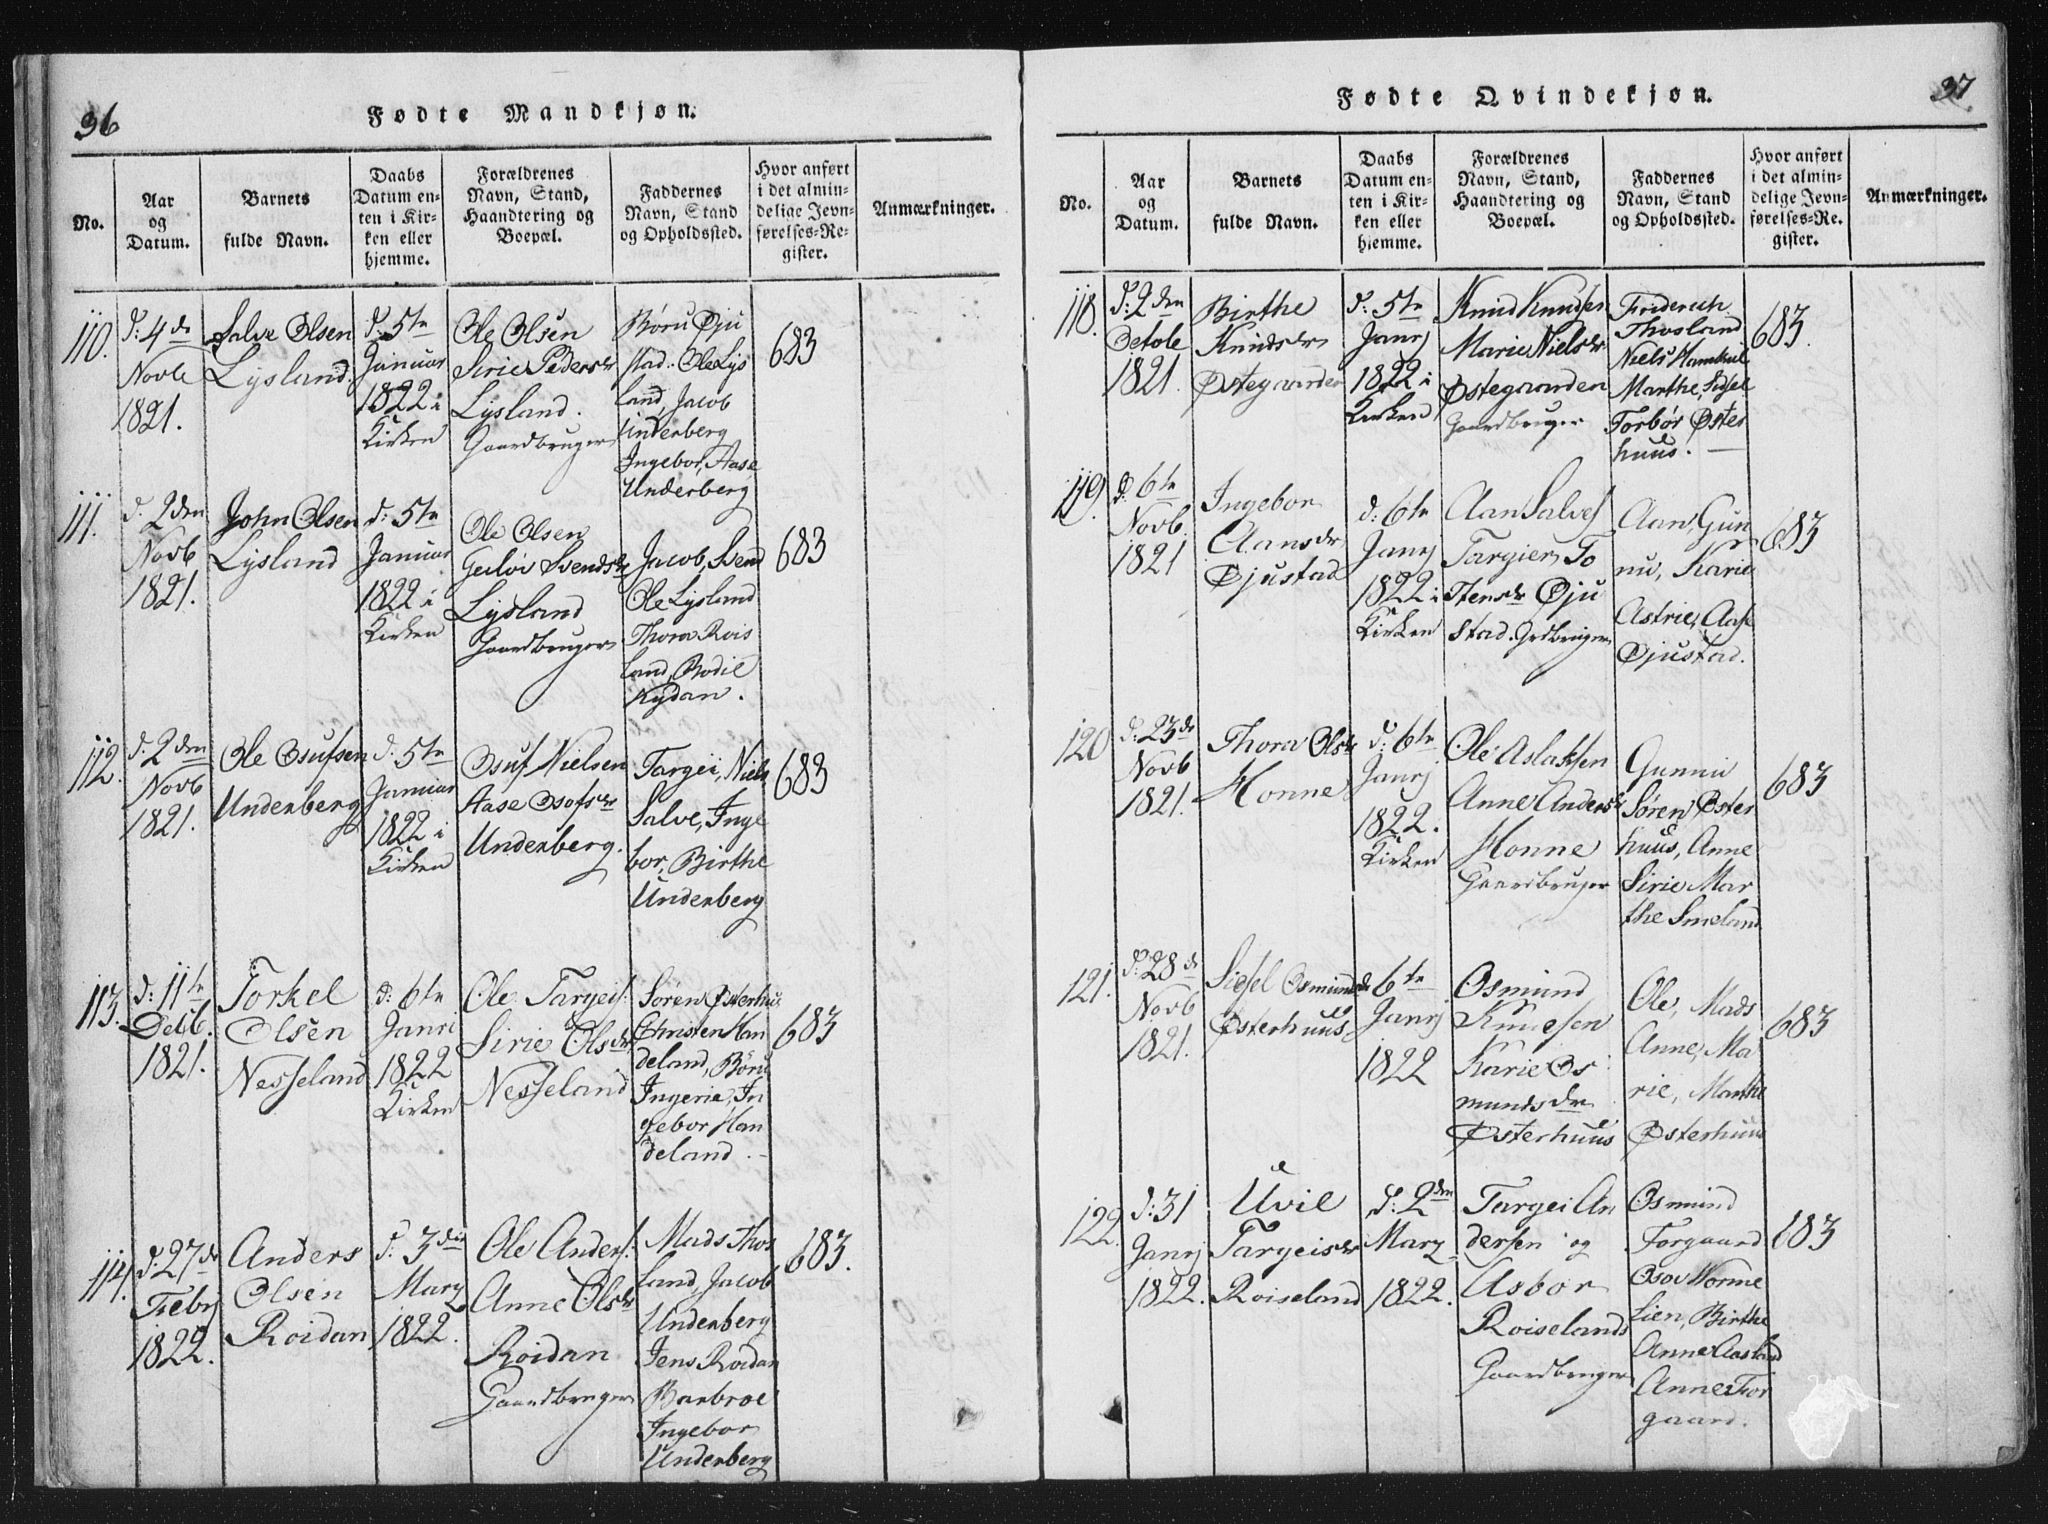 36
Fødte Mandkjøn.
No.
Aar og Datum.
Barnets fulde Navn.
Daabs Datum enten i Kirken eller hjemme.
Forældrenes Navn, Stand, Haandtering og Boepæl.
Faddernes Navn, Stand og Opholdssted.
Hvor anført i det almindelige Jevnførelses-Register.
Anmærkninger.
110.
d: 4de
Novb
1821.
Salve Olsen
Lysland.
d: 5te
Januar
1822 i
Kirken
Ole Olsen
Sirie Pedersdr
Lysland.
Gaardbruger
Børu Øju
stad. Ole Lys
land, Jacob
Underberg
Ingebor, Aase
Underberg
683
111.
d. 2den
Novb
1821.
John Olsen
Lysland
d: 5te
Januar
1822 i
Kirken
Ole Olsen
Svendsdr
Lysland
Gaardbruger
Jacob, Svend
Ole Lysland
Thora Rois
land, Bodil
Rydan.
683
112.
d. 2den
Novb
1821.
Ole Osufsen
Underberg
d. 5te
Januar
1822 i
Kirken
Osuf Nielsen
Aase Osofsdr
Underberg.
Targei, Niels
Salve, Inge
bor, Birthe
Underberg
683
113.
d: 11te
Decb.
1821.
Torkel
Olsen
Nesseland
d: 6te
Janri
1822
Kirken
Ole Targeis:
Sirie Olsdr
Nesseland
Søren Østerhu
Christen Han
deland, Børu
Ingerie, In
gebor Han
deland.
683
114.
d. 27de
Febrj
1822.
Anders
Olsen
Roidan
d: 3die
Marz
1822.
Ole Anders:
Anne Olsdr
Roidan
Gaardbruger
Mads Thos
land, Jacob
Underberg
Jens Roidan
Barbroe
Ingebor
Underberg
683.
37
Fødte Qvindekjøn.
No.
Aar og Datum.
Barnets fulde Navn.
Daabs Datum enten i Kirken eller hjemme.
Forældrenes Navn, Stand, Haandtering og Boepæl.
Faddernes Navn, Stand og Opholdssted.
Hvor anført i det almindelige Jevnførelses-Register.
Anmærkninger.
118.
d: 2den
Octob
1821.
Birthe
Knudsdr
Østegaarden
d: 5te
Janrj
1822 i
Kirken
Knud Knudsen
Marie Nielsdr
Østegaarden
Gaardbruger
Friderich
Thosland
Niels
Marthe, Sidsel
Torbør Øster
huus.
683.
119.
d. 6te
Novb.
1821
Ingebor
Aansdr
Øjustad
d: 6te
Janrj
1822 i
Kirken
Aan Salves
Targier To
stensdr Øju
stad. Grdbruger
Aan, Gun
nu, Karie
Astrie, Aase
Øjustad.
683
120
d. 23de
Novb
1821.
Thora Olsdr
Honne
d: 6te
Janrj
1822.
Kirken
Ole Aslaksen
Anne Andersdr
Honne
Gaardbruger
Gunnu
Søren Øster
huus, Anne
Sirie Mar
the Smeland
683
121.
d: 28de
Novb
1821.
Sidsel Osmundsdr
Østerhuus
6te
Janrj
1822
Osmund
Knudsen
Karie Os:
mundsdr
Østerhuus
Ole, Mads
Anne, Ma
rie, Marthe
Østerhuus
683
122.
d: 31
Janrj
1822.
Uvil
Targeisdr
Roiseland
d: 2den
Marz
1822.
Targei An
dersen og
Asbor
Roiseland
Gaardbruger
Osmund
Forgaard
Osov Honne
lien, Birthe
Anne Aasland
Anne For
gaard.
683